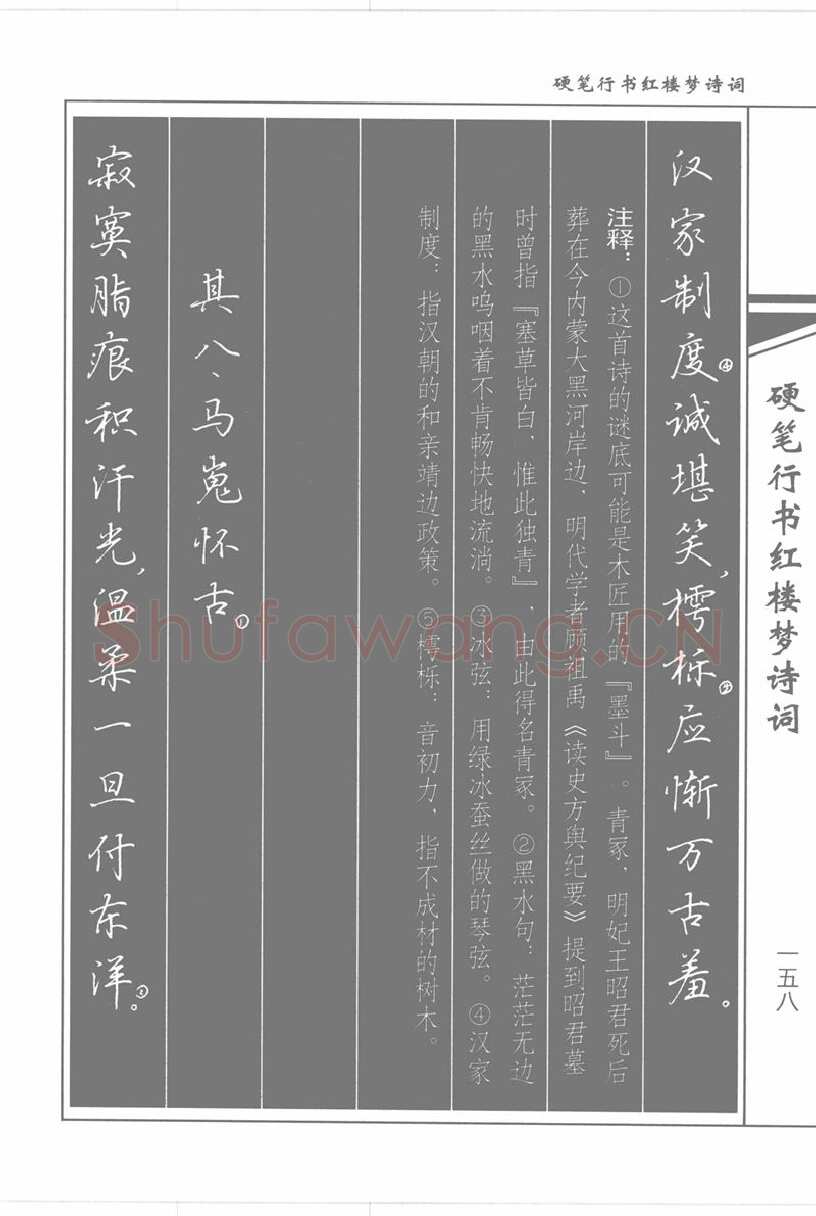 硬笔行书红楼梦诗词
硬笔行书红楼梦诗词
一五八
汉家制度④诚堪笑，樗栎⑤应惭万古羞。
注释：①这首诗的谜底可能是木匠用的『墨斗』。青冢，明妃王昭君死后
葬在今内蒙大黑河岸边，明代学者顾祖禹《读史方舆纪要》提到昭君墓
时曾指『塞草皆白，惟此独青』，由此得名青冢。②黑水句：茫茫无边
的黑水呜咽着不肯畅快地流淌。③冰弦：用绿冰蚕丝做的琴弦。④汉家
制度：指汉朝的和亲靖边政策。⑤樗栎：音初力，指不成材的树木。
其八、马嵬怀古①
寂寞脂痕积汗光，温柔一旦付东洋②。
Shufawang.CN